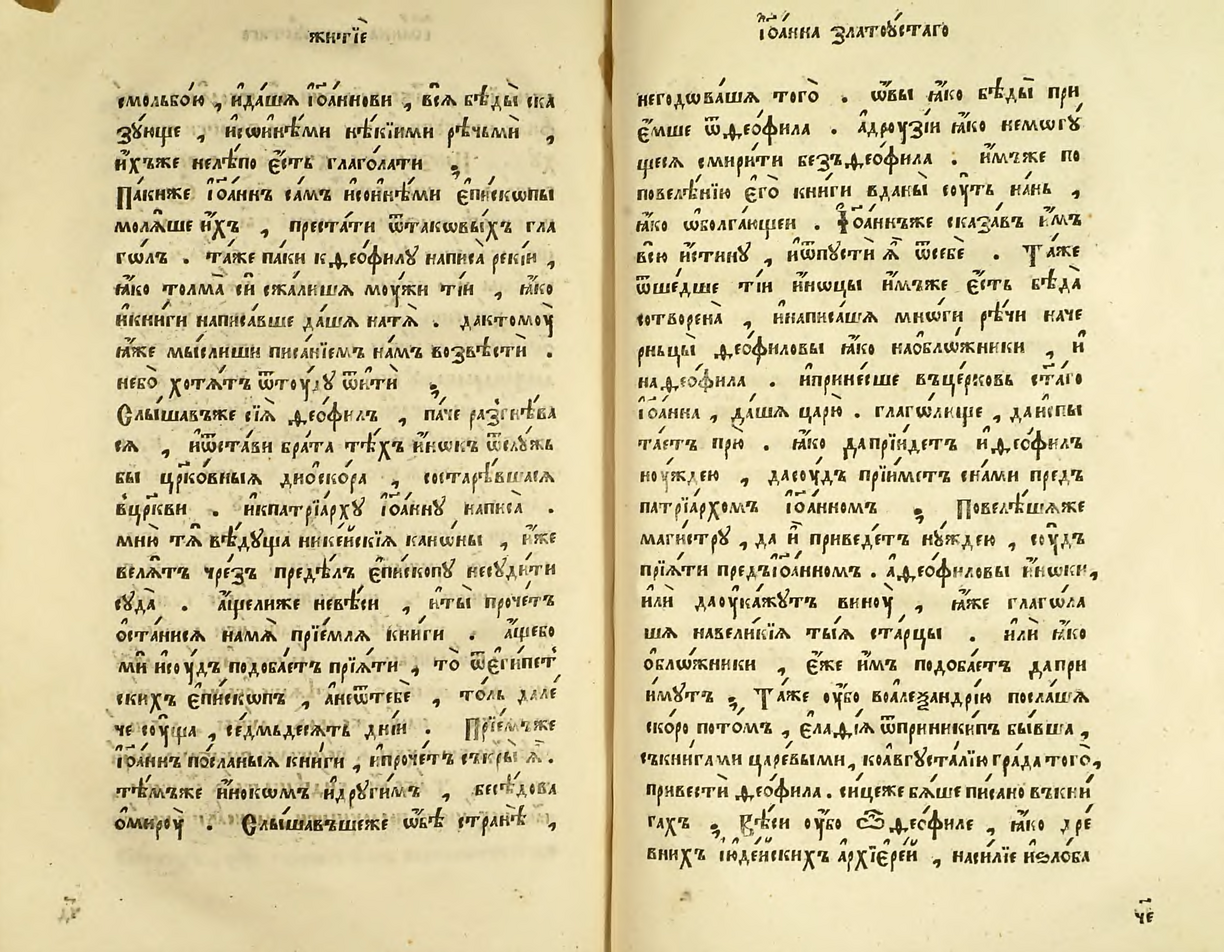 жи́тїе
смольбо́ю , и҆да́шѧ і҆ѡа́ннови , всѧ̀ бѣ́ды̀ ска
зꙋ́юще , и҆сѡи́нѣми нѣ́кїими рѣ́чьмѝ ,
и҆́хъже нелѣ́по є҆́сть глаго́лати ;
Па́киже і҆ѡа́ннъ са́мъ и҆сои́нѣми є҆пи́скѡпы
молѧ́ше и҆́хъ , преста́ти ѿтако́вы́хъ гла
гѡ́лъ . та́же па́ки к ѳео́филꙋ написа̀ рекі́й ,
ꙗ҆́ко толма̀ сѝ сжа́лишѧ моу́жи ті́и , ꙗ҆́ко
и҆кни́ги написа́вше да́шѧ натѧ̀ . дактомоу̀
ꙗ҆́же мы́слиши писа́нїемъ на́мъ возвѣ́стѝ .
небо̀ хотѧ́тъ ѿтоу́дꙋ ѿи́ти ;
Слы́шавъже сїѧ̀ ѳео́филъ , па́че разгнѣ́ва
сѧ , и҆ѿста́ви бра́та тѣ́хъ и҆́нокъ ѿслꙋ́жь
бы црко́вныѧ дио́скора , состарѣ́вшасѧ
вцр҃кви . и҆кпатрїа́рхꙋ і҆ѡа́ннꙋ написа̀ .
мню̀ тѧ̀ вѣ́дꙋща нике́искїѧ кано́ны , и҆́же
велѧ́тъ чре́зъ предѣ́лъ є҆пи́скопꙋ несꙋди́ти
сꙋда̀ . а҆́щелиже невѣ́си , и҆ты̀ прочетъ
оста́нисѧ намѧ̀ прїе́млѧ кни́ги . а҆́щебо
мѝ и҆соу́дъ подоба́етъ прїѧ́ти , то̀ ѿє҆ги́пет
скихъ є҆пи́скопъ , а҆неѿтебѐ , то́ль дале́
че соу́ща , се́дмьдесѧтъ дні́и . Прїе́мъже
і҆ѡа́ннъ по́сланыѧ кни́ги , и҆проче́тъ съкры̀ ѧ҆̀ .
тѣ́мъже и҆́нокѡмъ и҆дрꙋги́мъ , бесѣ́дова
о҆мироу̀ . Слы́шавъшеже ѡ҆́бѣ странѣ̀ ,
і҆ѡа́нна златоꙋ́стаго
негодова́шѧ того̀ . ѡ҆́вы ꙗ҆́ко бѣ́ды̀ при
є҆́мше ѿѳео́фила . а҆дроузі́и ꙗ҆́ко немогꙋ́
щесѧ смири́ти безъѳео́фила . и҆́мъже по
повелѣ́нїю є҆го̀ кни́ги вданы̀ соу́ть на́нь ,
ꙗ҆́ко ѡ҆болга́ющеи . І҆ѡа́ннъже сказа́въ и҆́мъ
всю̀ и҆́стинꙋ , и҆ѿпꙋстѝ ѧ҆̀ ѿсебѐ . Та́же
ѿше́дше ті́и и҆́ноцы и҆́мъже є҆́сть бѣда̀
сотворена̀ , и҆написа́шѧ мно́ги рѣ́чи наче
рньцы̀ ѳео́филовы ꙗ҆́ко наоблѡ́жники , и҆
наѳео́фила . и҆прине́сше въце́рковь ст҃а́го
і҆ѡа́нна , да́шѧ царю̀ . глаго́люще , даи҆спы
та́етъ прю̀ . ꙗ҆́ко даприи́детъ и҆ѳео́филъ
ноу́ждею , дасоу́дъ прїи́метъ сна́ми предъ
патрїа́рхомъ і҆ѡа́нномъ ; Повелѣ́шѧже
маги́стрꙋ , да и҆̀ приведе́тъ нꙋ́ждею , соу́дъ
прїѧ́ти предъі҆ѡа́нномъ . а҆ѳео́филовы и҆́ноки ,
и҆лѝ даоука́жꙋтъ виноу̀ , ꙗ҆́же глаго́ла
шѧ навели́кїѧ ты́ѧ ста́рцы . и҆лѝ ꙗ҆́ко
о҆блѡ́жники , є҆́же и҆́мъ подоба́етъ дапри
и́мꙋтъ ; Та́же оу҆́бо воалеѯандрі́ю посла́шѧ
ско́ро пото́мъ , є҆ла́дїѧ ѿпри́никипъ бы́вша ,
съкни́гами царе́выми , коавгꙋста́лїю гра́да того̀ ,
привестѝ ѳео́фила . си́цеже бѧ́ше пи́сано въкни́
гахъ ; Вѣ́си оу҆́бо ѽ ѳео́филе , ꙗ҆́ко дре́
внихъ і҆ꙋде́искихъ а҆рхїєре́й , наси́лїе и҆ѕло́ба
че